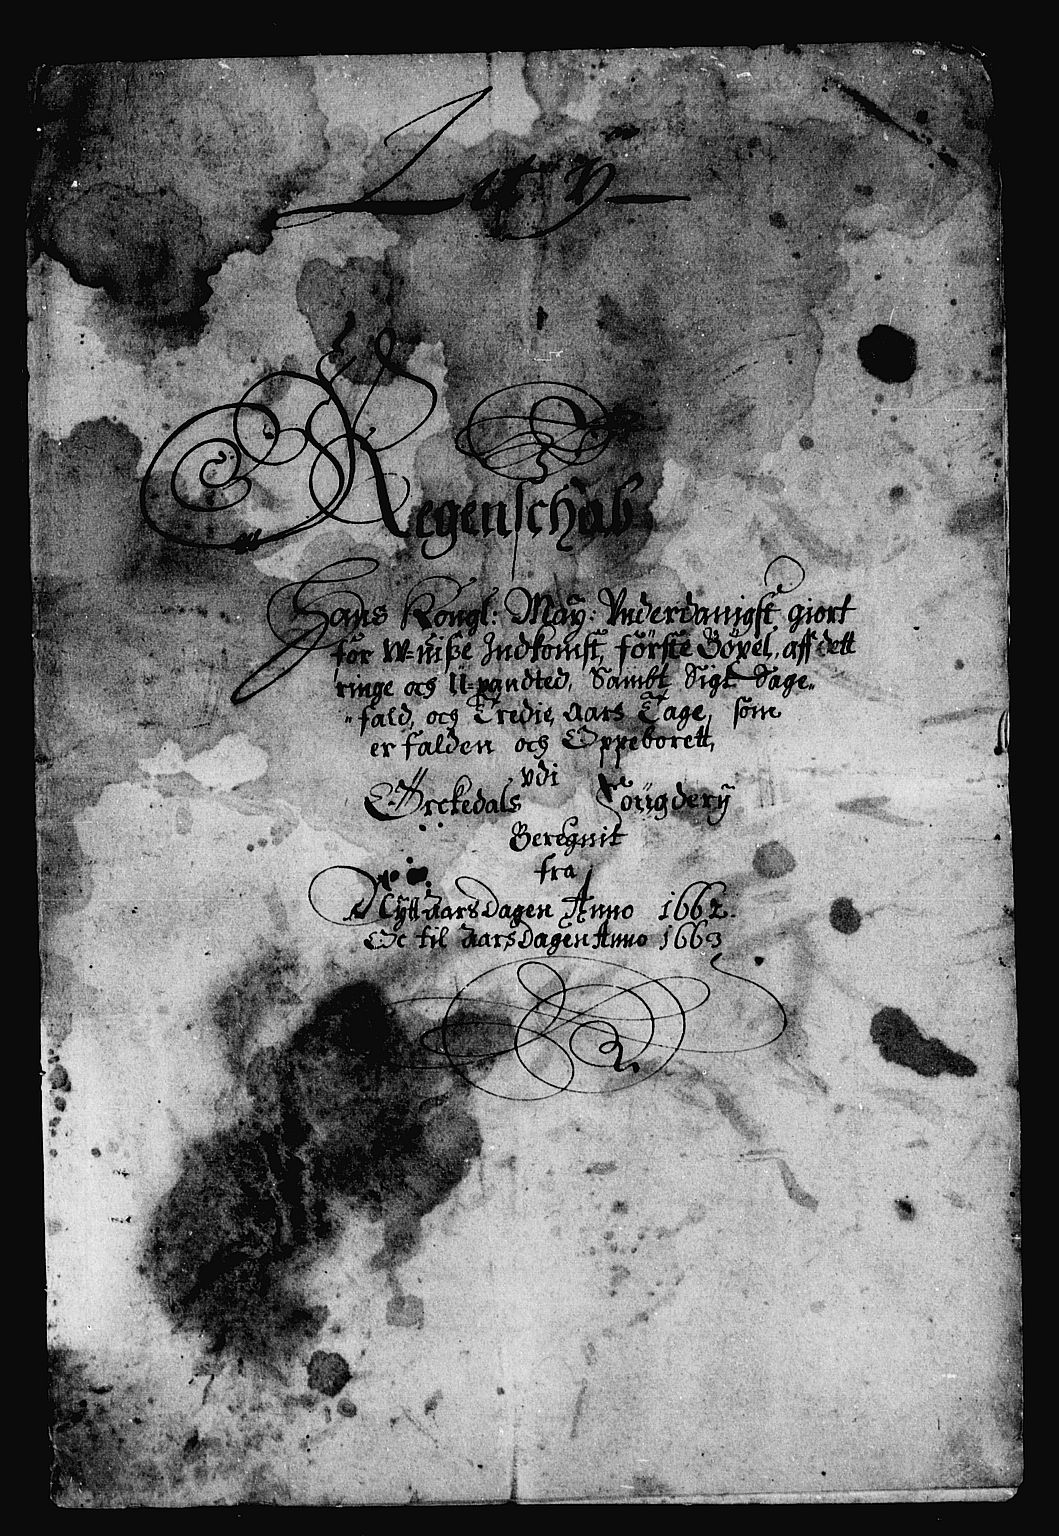 Lit ÿ
Regenschab,
Hans Kongl: Maÿ: Vnderdanigst giort
for W-wiße Indkomst, förste Böxel, aff dett
ringe och U-pandted, Sambt Sigt Sage,,
,,fald, och Tredie Aars Tage, som
er falden och Oppeborett,
vdi
Örckedals Fougderÿ
Beregnit
fra
Nytt Aars Dagen Anno 1662.
Oc til Aars Dagen Anno 1663